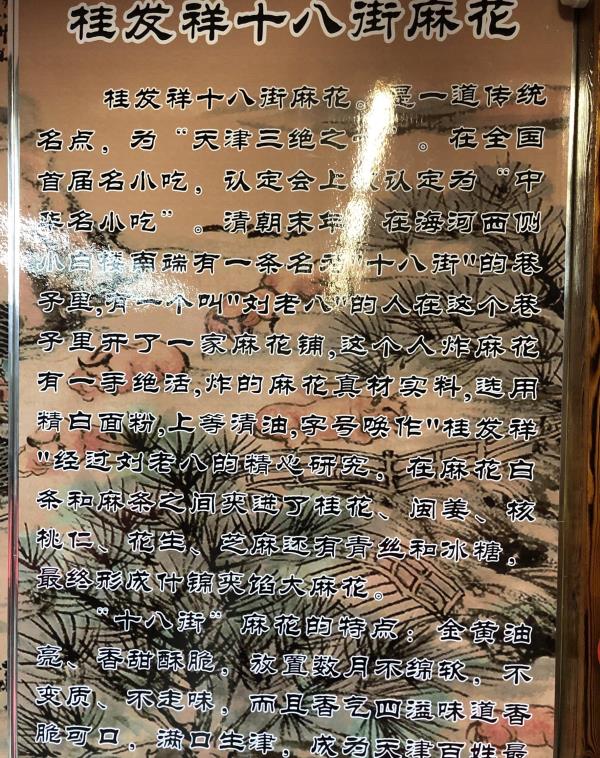 桂发祥十八街麻花
桂发祥十八街麻花。是一道传统
名点，为“天津三绝之一”。在全国
首届名小吃，认定会上被认定为“中
华名小吃”。清朝末年，在海河西侧
小白楼南端有一条名为"十八街"的巷
子里,有一个叫"刘老八"的人在这个巷
子里开了一家麻花铺,这个人炸麻花
有一手绝活,炸的麻花真材实料,选用
精白面粉,上等清油,字号唤作"桂发祥
"经过刘老八的精心研究，在麻花白
条和麻条之间夹进了桂花、闽姜、核
桃仁、花生、芝麻还有青丝和冰糖，
最终形成什锦夹馅大麻花。
“十八街”麻花的特点：金黄油
亮、香甜酥脆，放置数月不绵软，不
变质、不走味，而且香气四溢味道香
脆可口，满口生津，成为天津百姓最